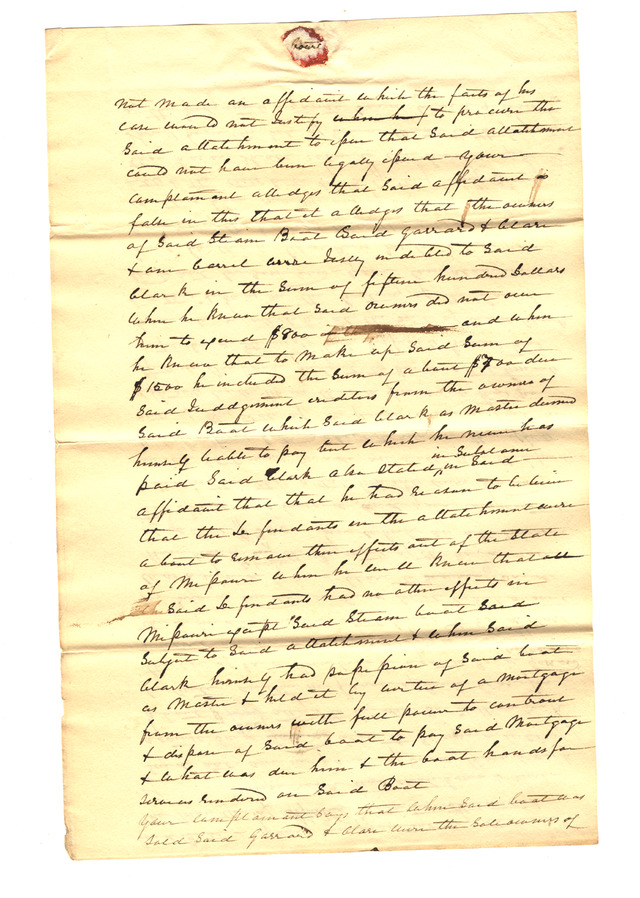 Court
not made an affidavit which the facts of his
case would not Justify when he to procure the
Said attatchment to issue that Said attatchment
could not have been legally issued your
complainant alledges that Said affidavit is
false in this that it alledges that the owners
of Said Steam Boat Said Garrard & Clare
& were Justly indebted to Said
Clark in the Sum of fifteen hundred Dollars
when he knew that Said owners did not owe
him to exceed $800 and when
he knew that to make up Said Sum of
$1500 he included the Sum of about $700 due
Said Juddgement creditors from the owners of
Said Boat which Said Clark as Master deemed
himself liable to pay but which he never has
paid Said Clark also Stated in Substance in Said
affidavit that that he had reason to believe
that the Defendants in the attatchment were
about to remove their effects out of the State
of Missouri when he well knew that all
Said Defendants had no other effects in
Missouri except Said Steam boat Said
Subject to Said attatchment & when Said
Clark himself had possession of Said boat
as Master & held it by virtue of a Mortgage
from the owners with full power to controul
& dispose of Said boat to pay Said Mortgage
& what was due him & the boat hands for
services rendered on Said Boat
Your complainant Says that when Said boat was
Sold Said Garrard & Clare were the Sole owners of